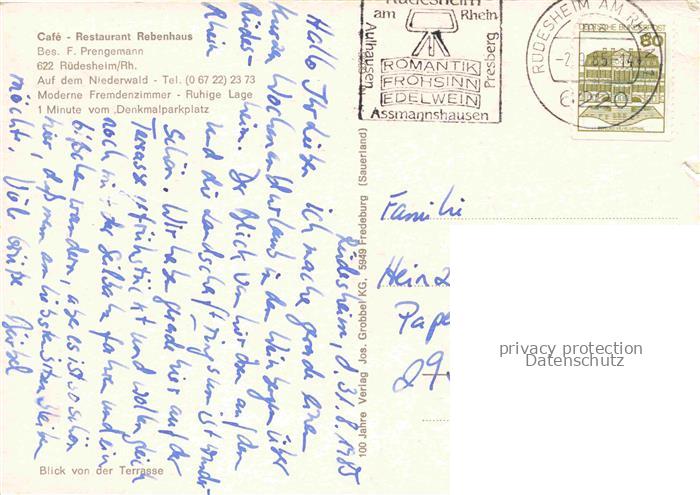 Café - Restaurant Rebenhaus
Bes. F. Prengemann
622 Rüdesheim/Rh.
Auf dem Niederwald - Tel. (0 67 22) 23 73
Moderne Fremdenzimmer - Ruhige Lage
1 Minute vom „Denkmalparkplatz
Rüdesheim
am Rhein
Aulhausen
Presberg
ROMANTIK
FROHSINN
EDELWEIN
Assmannshausen
RÜDESHEIM AM RH
6220
DEUTSCHE BUNDESPOST
80
Rüdesheim, d. 31.8.1985
Hallo Ihr Lieben ich mache gerade einen
kurzen Wochenendurlaub in den Weinbergen über
Rüdes-heim. Der Blick von hier oben auf den
Rhein und die Landschaft ringsum ist wunder-
schön. Wir haben gerade hier auf der
Terasse gefrühstückt und wollen gleich
noch mit der Seilbahn fahren und ein
bißchen wandern, aber es ist so schön
hier, daß man am liebsten sitzen bleiben
möchte. Viele Grüße
100 Jahre Verlag Jos. Grobbel KG, 5949 Fredeburg (Sauerland)
Familie
Hein
Pape
29
privacy protection
Datenschutz
Blick von der Terrasse